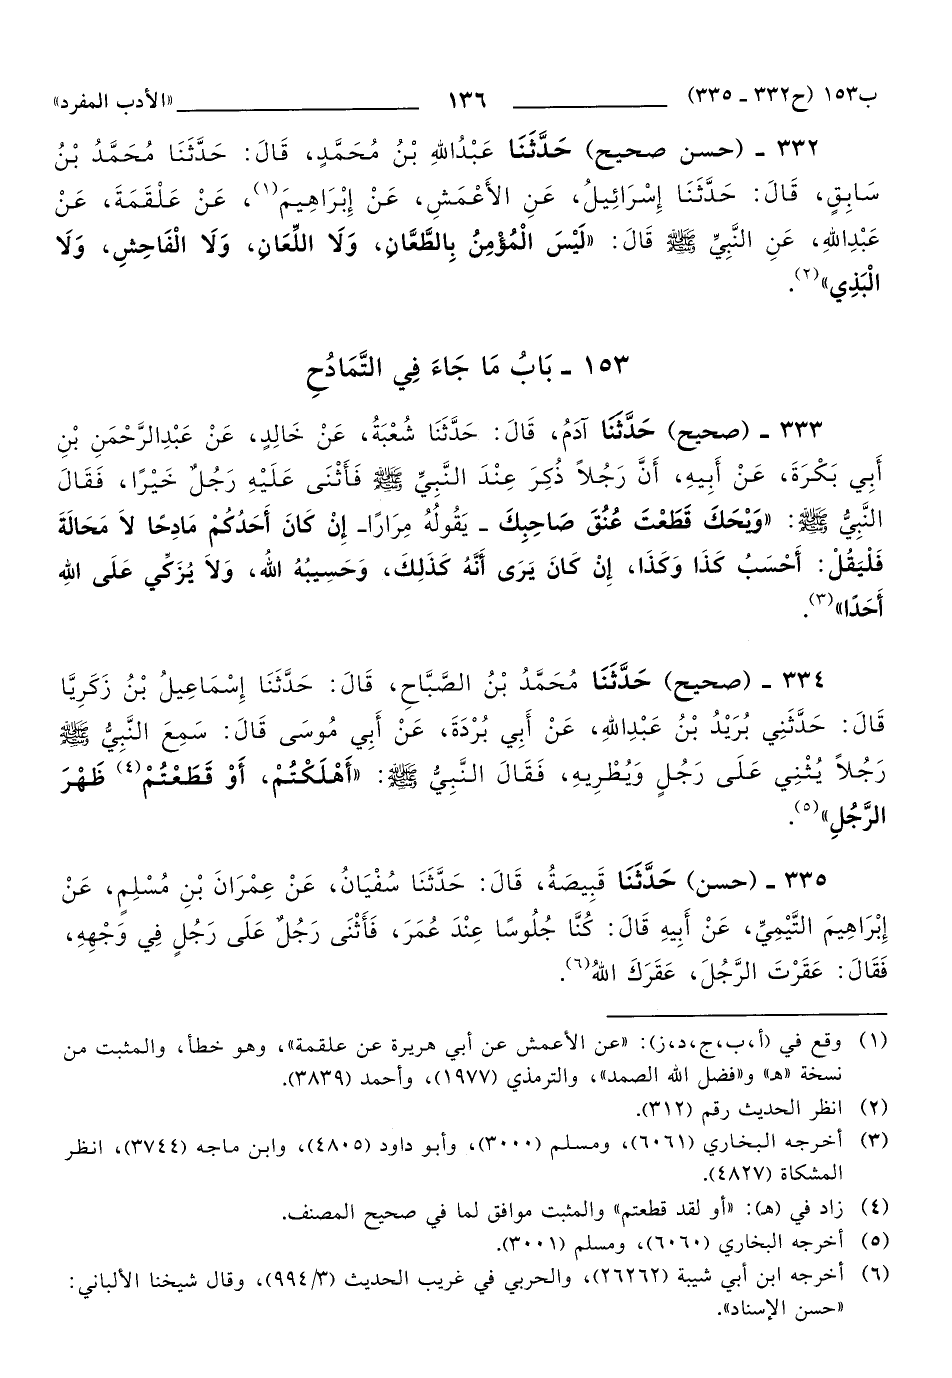 ب١٥٣ (ح٣٣٢ - ٣٣٥) ١٣٦ «الأدب المفرد»
٣٣٢ - (حسن صحيح) حَدَّثَنَا عَبْدُاللهِ بْنُ مُحَمَّدٍ، قَالَ: حَدَّثَنَا مُحَمَّدُ بْنُ
سَابِقٍ، قَالَ: حَدَّثَنَا إِسْرَائِيلُ، عَنِ الأَعْمَشِ، عَنْ إِبْرَاهِيمَ(١)، عَنْ عَلْقَمَةَ، عَنْ
عَبْدِاللهِ، عَنِ النَّبِيِّ ﷺ قَالَ: «لَيْسَ الْمُؤْمِنُ بِالطَّعَّانِ، وَلَا اللِّعَانِ، وَلَا الْفَاحِشِ، وَلَا
الْبَذِي»(٢).
١٥٣ - بَابُ مَا جَاءَ فِي التَّمَادُحِ
٣٣٣ - (صحيح) حَدَّثَنَا آدَمُ، قَالَ: حَدَّثَنَا شُعْبَةُ، عَنْ خَالِدٍ، عَنْ عَبْدِالرَّحْمَنِ بْنِ
أَبِي بَكْرَةَ، عَنْ أَبِيهِ، أَنَّ رَجُلاً ذُكِرَ عِنْدَ النَّبِيِّ ﷺ فَأَثْنَى عَلَيْهِ رَجُلٌ خَيْرًا، فَقَالَ
النَّبِيُّ ﷺ: «وَيْحَكَ قَطَعْتَ عُنُقَ صَاحِبِكَ - يَقُولُهُ مِرَارًا- إِنْ كَانَ أَحَدُكُمْ مَادِحًا لاَ مَحَالَةَ
فَلْيَقُلْ: أَحْسَبُ كَذَا وَكَذَا، إِنْ كَانَ يَرَى أَنَّهُ كَذَلِكَ، وَحَسِيبُهُ اللهُ، وَلاَ يُزَكِّي عَلَى اللهِ
أَحَدًا»(٣).
٣٣٤ - (صحيح) حَدَّثَنَا مُحَمَّدُ بْنُ الصَّبَّاحِ، قَالَ: حَدَّثَنَا إِسْمَاعِيلُ بْنُ زَكَرِيَّا
قَالَ: حَدَّثَنِي بُرَيْدُ بْنُ عَبْدِاللهِ، عَنْ أَبِي بُرْدَةَ، عَنْ أَبِي مُوسَى قَالَ: سَمِعَ النَّبِيُّ ﷺ
رَجُلاً يُثْنِي عَلَى رَجُلٍ وَيُطْرِيهِ، فَقَالَ النَّبِيُّ ﷺ: «أَهْلَكْتُمْ، أَوْ قَطَعْتُمْ(٤) ظَهْرَ
الرَّجُلِ»(٥).
٣٣٥ - (حسن) حَدَّثَنَا قَبِيصَةُ، قَالَ: حَدَّثَنَا سُفْيَانُ، عَنْ عِمْرَانَ بْنِ مُسْلِمٍ، عَنْ
إِبْرَاهِيمَ التَّيْمِيِّ، عَنْ أَبِيهِ قَالَ: كُنَّا جُلُوسًا عِنْدَ عُمَرَ، فَأَثْنَى رَجُلٌ عَلَى رَجُلٍ فِي وَجْهِهِ،
فَقَالَ: عَقَرْتَ الرَّجُلَ، عَقَرَكَ اللهُ(٦).
(١) وقع في (أ،ب،ج،د،ز): «عن الأعمش عن أبي هريرة عن علقمة»، وهو خطأ، والمثبت من
نسخة «هـ» و«فضل الله الصمد»، والترمذي (١٩٧٧)، وأحمد (٣٨٣٩).
(٢) انظر الحديث رقم (٣١٢).
(٣) أخرجه البخاري (٦٠٦١)، ومسلم (٣٠٠٠)، وأبو داود (٤٨٠٥)، وابن ماجه (٣٧٤٤)، انظر
المشكاة (٤٨٢٧).
(٤) زاد في (هـ): «أو لقد قطعتم» والمثبت موافق لما في صحيح المصنف.
(٥) أخرجه البخاري (٦٠٦٠)، ومسلم (٣٠٠١).
(٦) أخرجه ابن أبي شيبة (٢٦٢٦٢)، والحربي في غريب الحديث (٩٩٤/٣)، وقال شيخنا الألباني:
«حسن الإسناد».